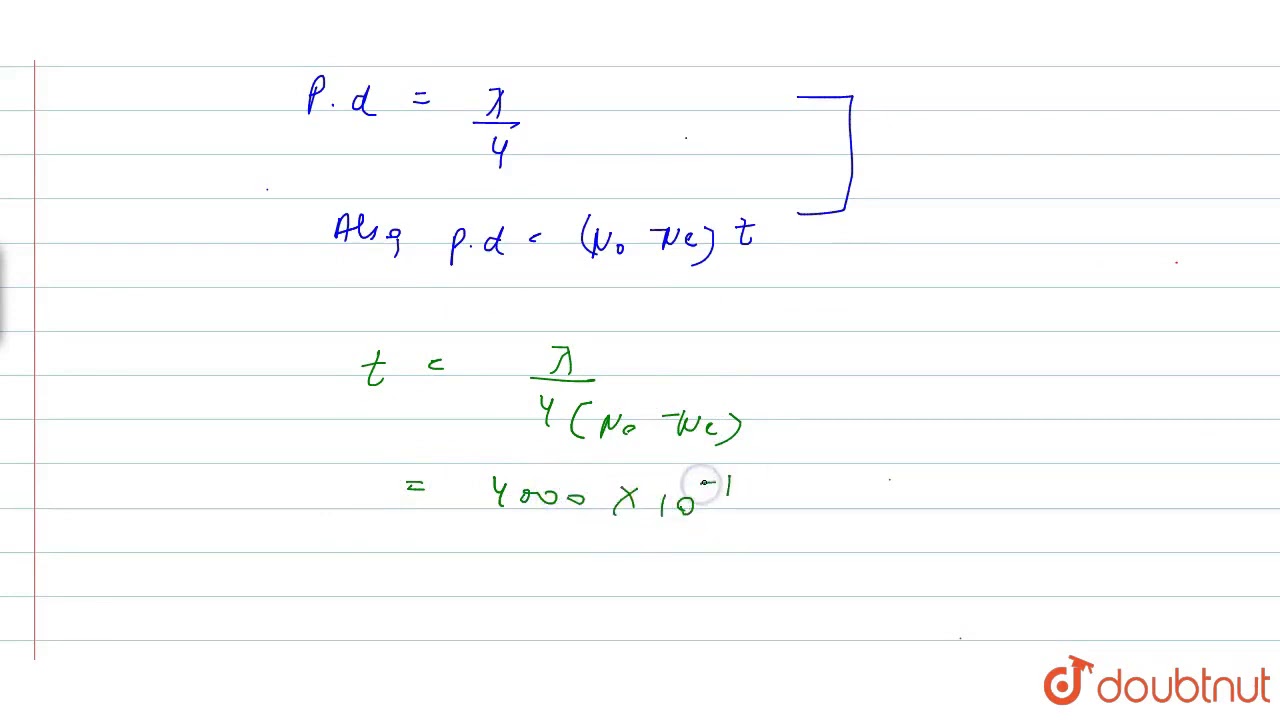 P.d = λ/4
Also p.d = (μo - μe) t
t = λ/4(μo - μe)
= 4000 × 10^-1
doubtnut